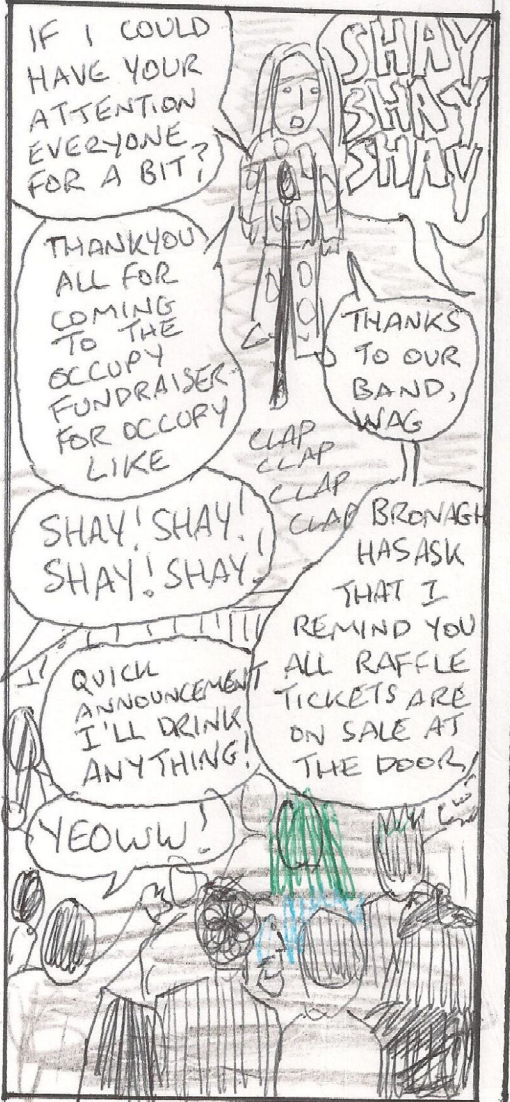 IF I COULD
HAVE YOUR
ATTENTION
EVERYONE
FOR A BIT?
SHAY
SHAY
SHAY
THANKYOU
ALL FOR
COMING
TO THE
OCCUPY
FUNDRAISER
FOR OCCUPY
LIKE
THANKS
TO OUR
BAND,
WAG
CLAP
CLAP
CLAP
CLAP
SHAY! SHAY!
SHAY! SHAY!
BRONAGH
HAS ASK
THAT I
REMIND YOU
ALL RAFFLE
TICKETS ARE
ON SALE AT
THE DOOR
QUICK
ANNOUNCEMENT
I'LL DRINK
ANYTHING!
YEOWW!